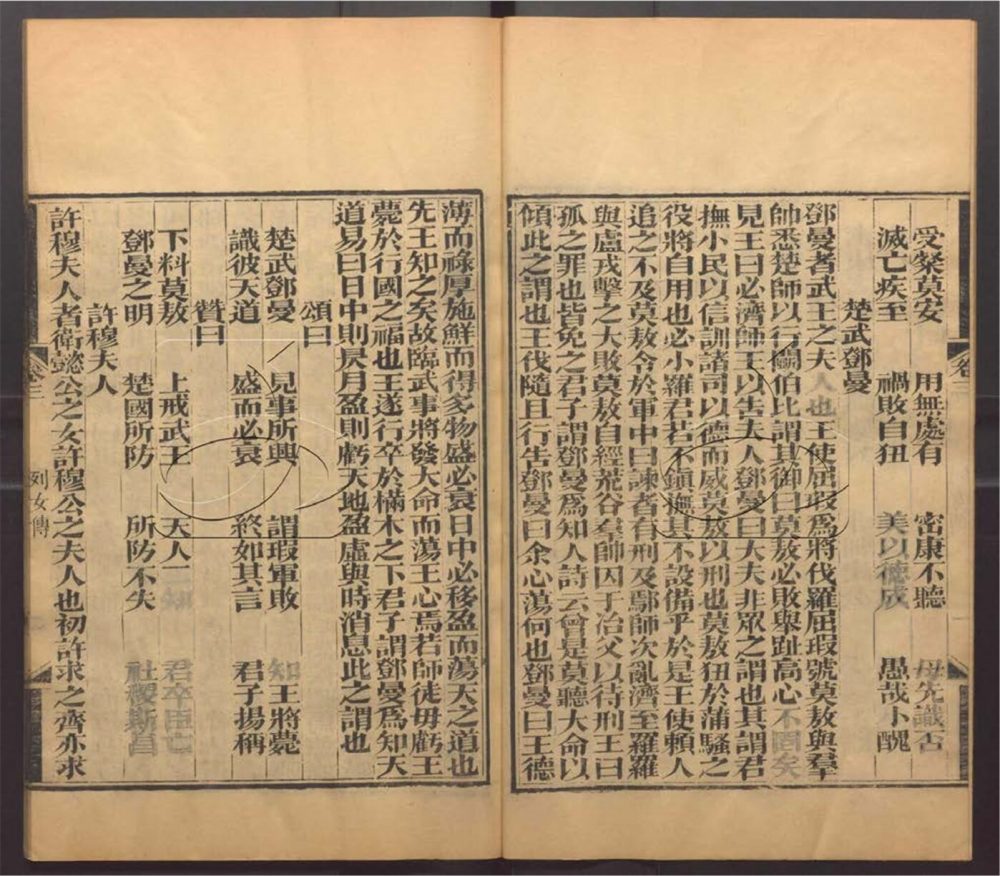 受粲莫安 用無處有 密康不聽 母先識否
滅亡疾至 禍敗自狃 美以德成 愚哉小醜
楚武鄧曼
鄧曼者武王之夫人也王使屈瑕爲將伐羅屈瑕號莫敖與羣
帥悉楚師以行鬭伯比謂其御曰莫敖必敗舉趾高心不固矣
見王曰必濟師王以告夫人鄧曼曰大夫非眾之謂也其謂君
撫小民以信訓諸司以德而威莫敖以刑也莫敖狃於蒲騷之
役將自用也必小羅君若不鎭撫其不設備乎於是王使賴人
追之不及莫敖令於軍中曰諫者有刑及鄢師次亂濟至羅羅
與盧戎擊之大敗莫敖自經荒谷羣師囚于冶父以待刑王曰
孤之罪也皆免之君子謂鄧曼爲知人詩云曾是莫聽大命以
傾此之謂也王伐隨且行告鄧曼曰余心蕩何也鄧曼曰王德
薄而祿厚施鮮而得多物盛必衰日中必移盈而蕩天之道也
先王知之矣故臨武事將發大命而蕩王心焉若師徒毋虧王
薨於行國之福也王遂行卒於樠木之下君子謂鄧曼爲知天
道易曰日中則昃月盈則虧天地盈虛與時消息此之謂也
頌曰
楚武鄧曼 見事所興 謂瑕軍敗 知王將薨
識彼天道 盛而必衰 終如其言 君子揚稱
贊曰
下料莫敖 上戒武王 天人二知 君卒臣亡
鄧曼之明 楚國所防 所防不失 社稷斯昌
許穆夫人
許穆夫人者衛懿公之女許穆公之夫人也初許求之齊亦求
卷三
列女傳